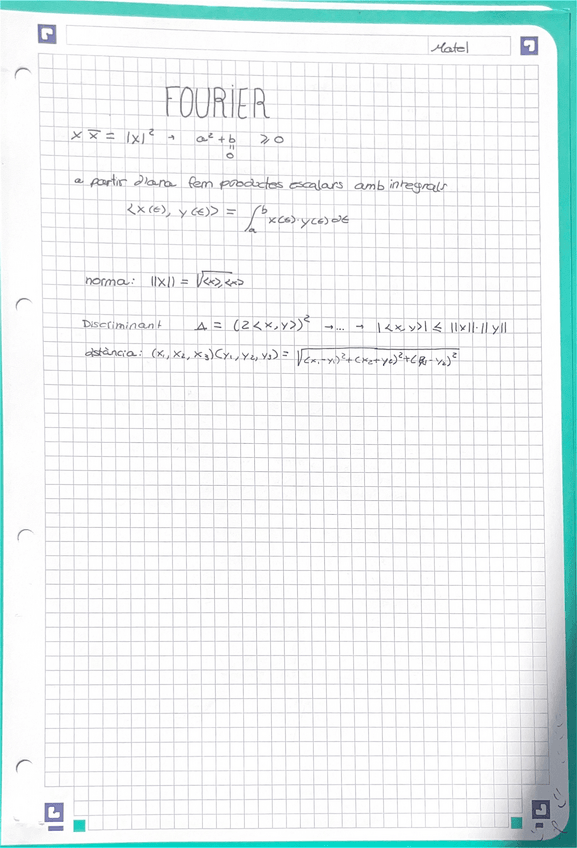 Mates
FOURIER
x x̄ = |x|² → a² + b ≥ 0
"
0
a partir d'ara fem productes escalars amb integrals
<x(t), y(t)> = ∫ₐᵇ x(t)·y(t) dt
norma: ||x|| = √<x>,<x>
Discriminant Δ = (2<x,y>)² →...→ |<x,y>| ≤ ||x||·||y||
distància: (x₁, x₂, x₃)(y₁, y₂, y₃) = √(x₁-y₁)²+(x₂+y₂)²+(x₃-y₃)²